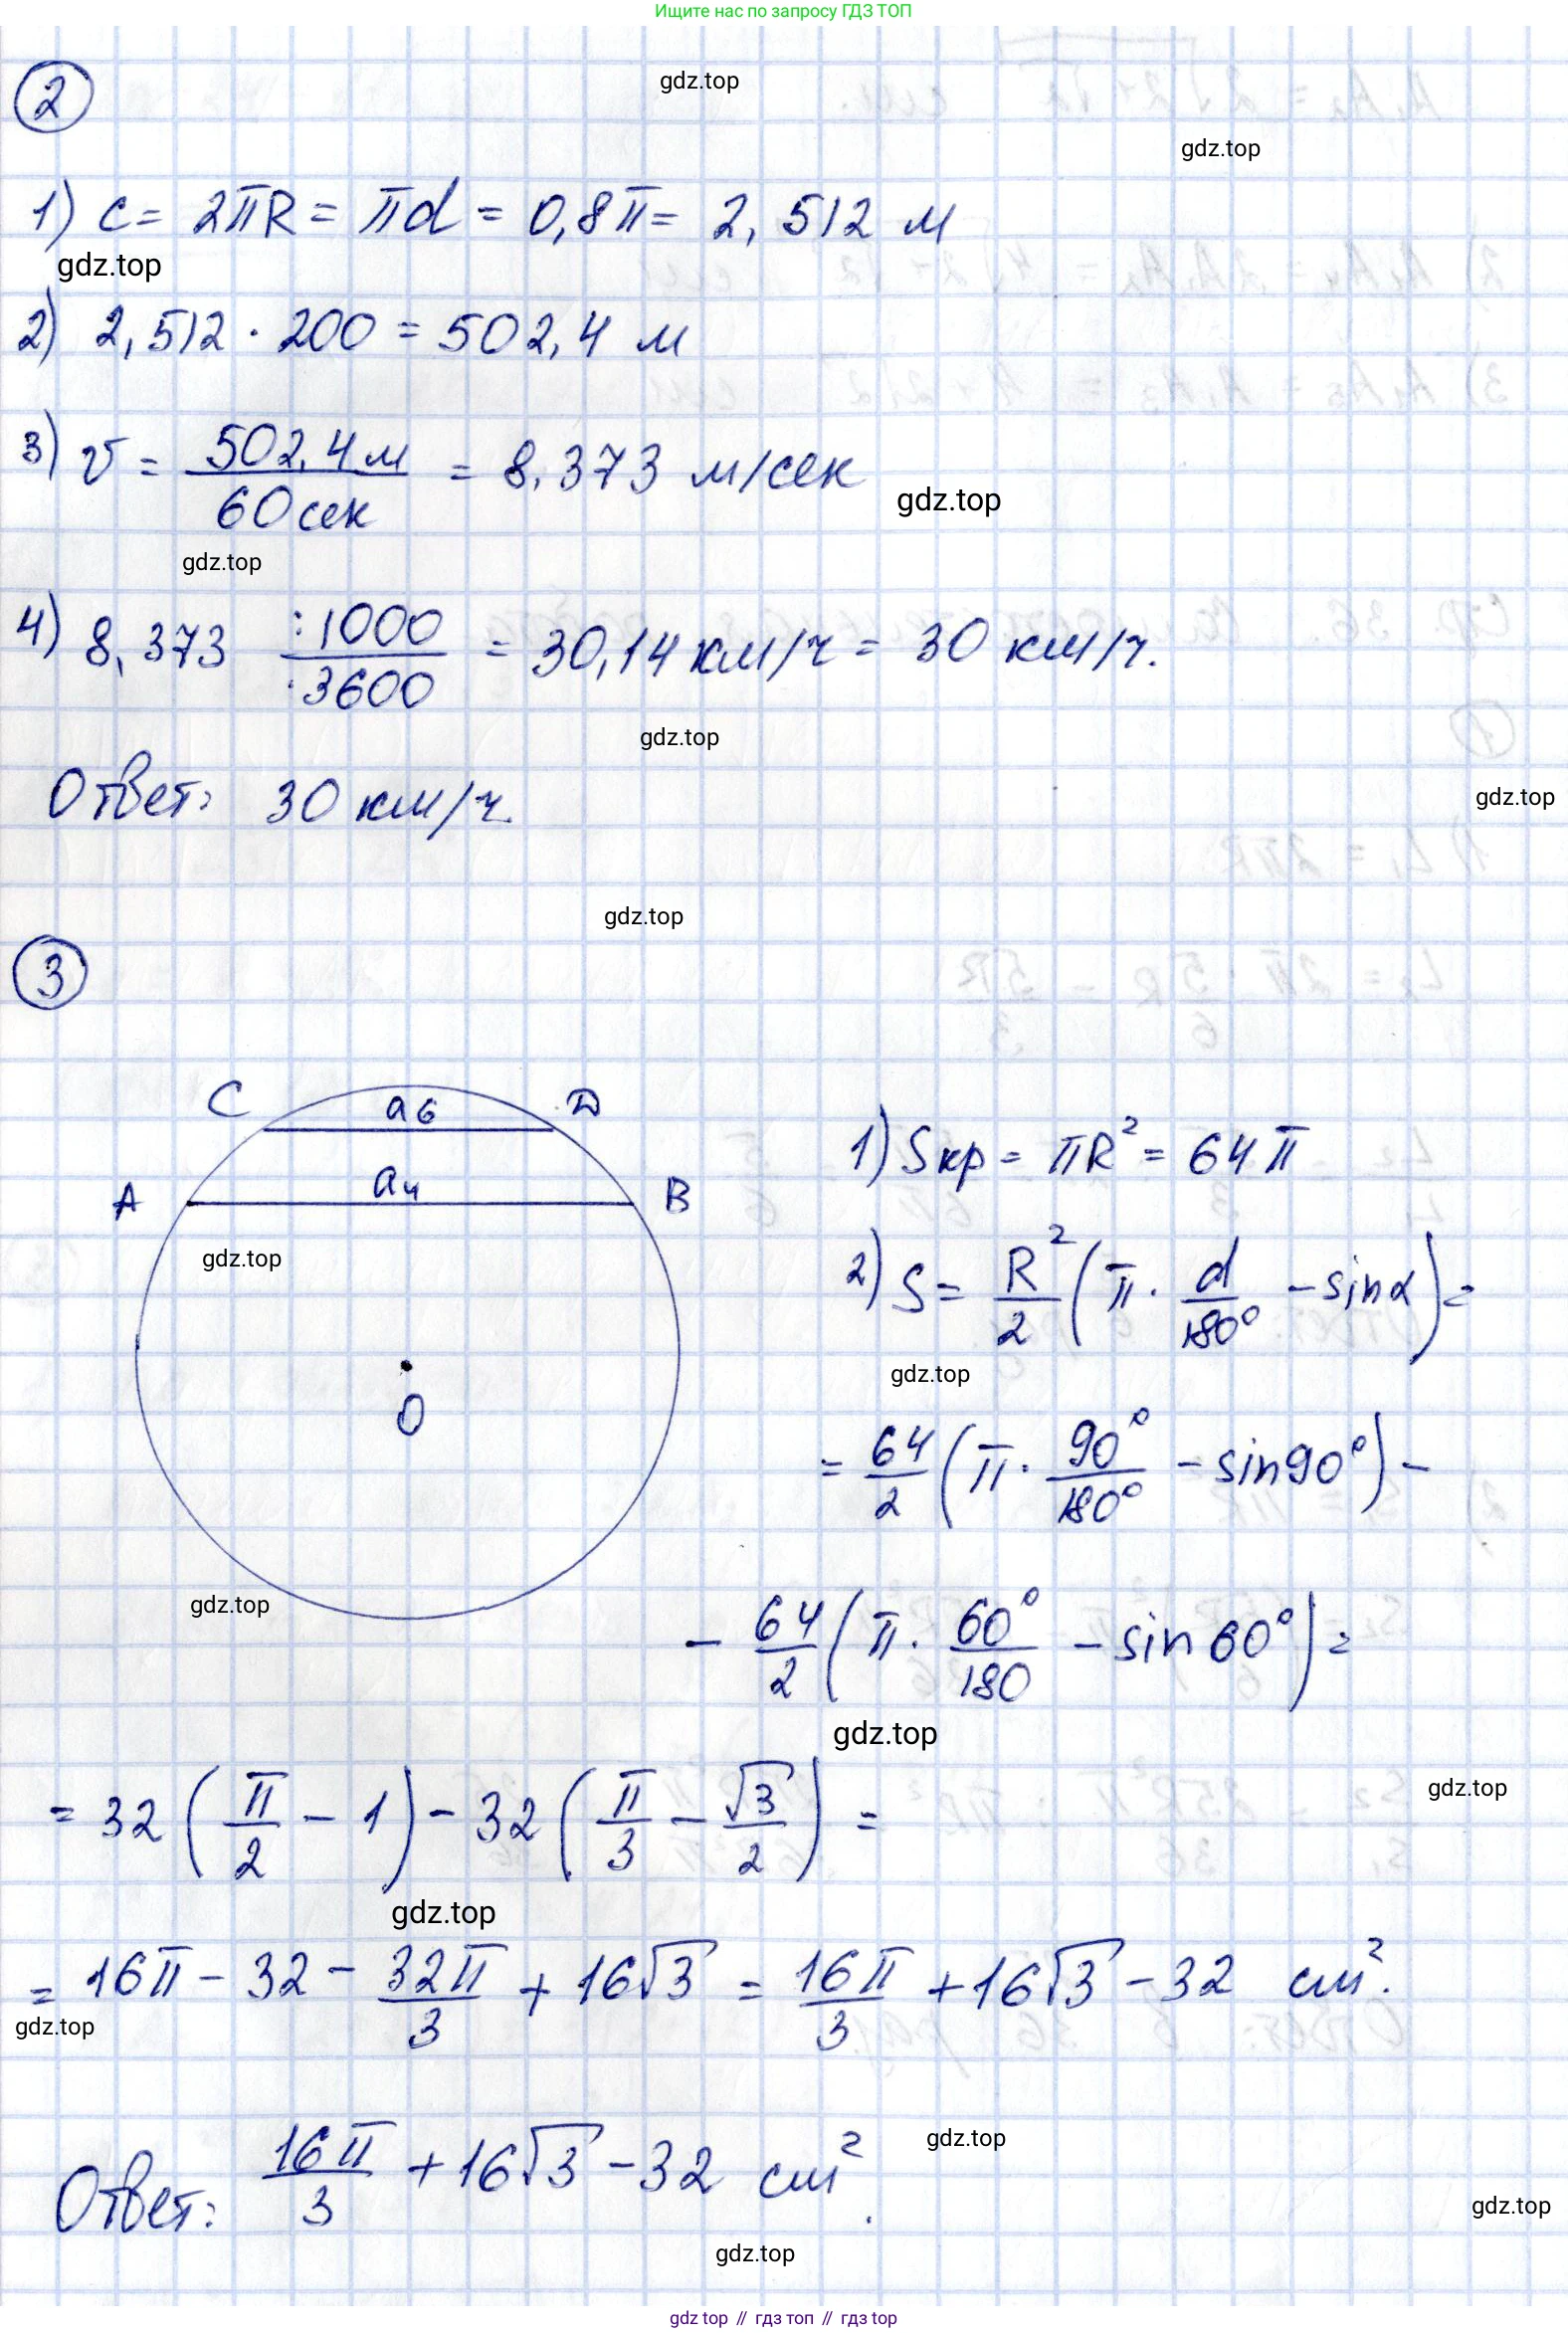 Ищите нас по запросу ГДЗ ТОП
2
gdz.top
gdz.top
1) C = 2πR = πd = 0,8π = 2,512 м
gdz.top
2) 2,512 · 200 = 502,4 м
3) v = 502,4 м / 60 сек = 8,373 м/сек
gdz.top
gdz.top
4) 8,373 :1000 / :3600 = 30,14 км/ч = 30 км/ч.
gdz.top
Ответ: 30 км/ч.
gdz.top
gdz.top
3
C a₆ D
A a₄ B
gdz.top
O
gdz.top
1) Sкр = πR² = 64π
2) S = R²/2 (π · d/180° - sinα) =
gdz.top
= 64/2 (π · 90°/180° - sin90°) -
- 64/2 (π · 60°/180 - sin60°) =
gdz.top
= 32 (π/2 - 1) - 32 (π/3 - √3/2) =
gdz.top
gdz.top
= 16π - 32 - 32π/3 + 16√3 = 16π/3 + 16√3 - 32 см².
gdz.top
Ответ: 16π/3 + 16√3 - 32 см².
gdz.top
gdz.top
gdz.top
gdz top // гдз топ // гдз top